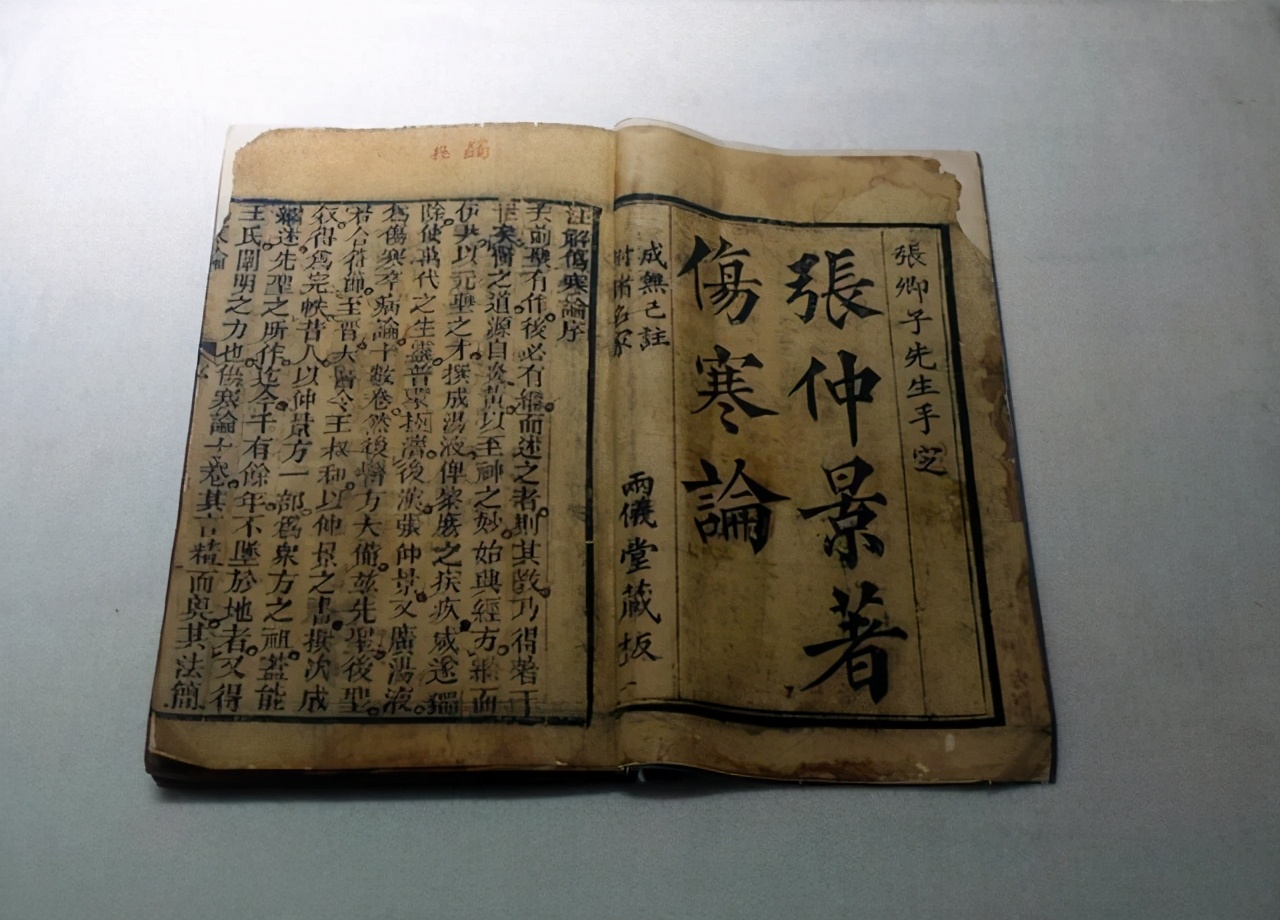 張卿子先生手定
張仲景著
傷寒論
成無己註
附諸名家
兩儀堂藏板
注解傷寒論序
夫前聖有作後必有繼而述之者則其教乃得著于
世矣醫之道源自炎黃以至神之妙始興經方繼而
伊尹以元聖之才撰成湯液俾黎庶之疾疚咸遂蠲
除使萬代之生靈普蒙拯濟後漢張仲景又廣湯液
為傷寒卒病論十數卷然後醫方大備茲先聖後聖
若合符節至晉太醫令王叔和以仲景之書撰次成
敘得為完帙昔人以仲景方一部為衆方之祖蓋能
繼述先聖之所作迄今千有餘年不墜於地者又得
王氏闡明之力也傷寒論十卷其言精而奧其法簡